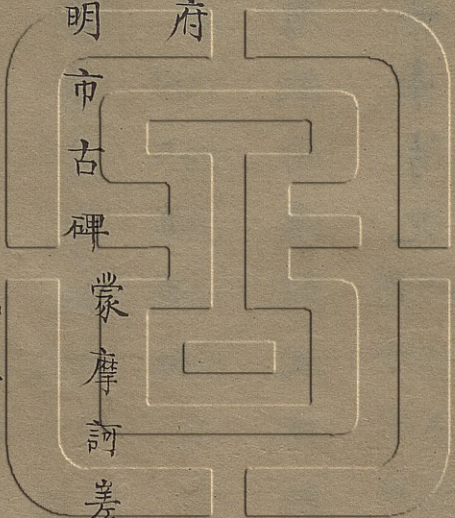 府
明市古碑蒙摩訶差